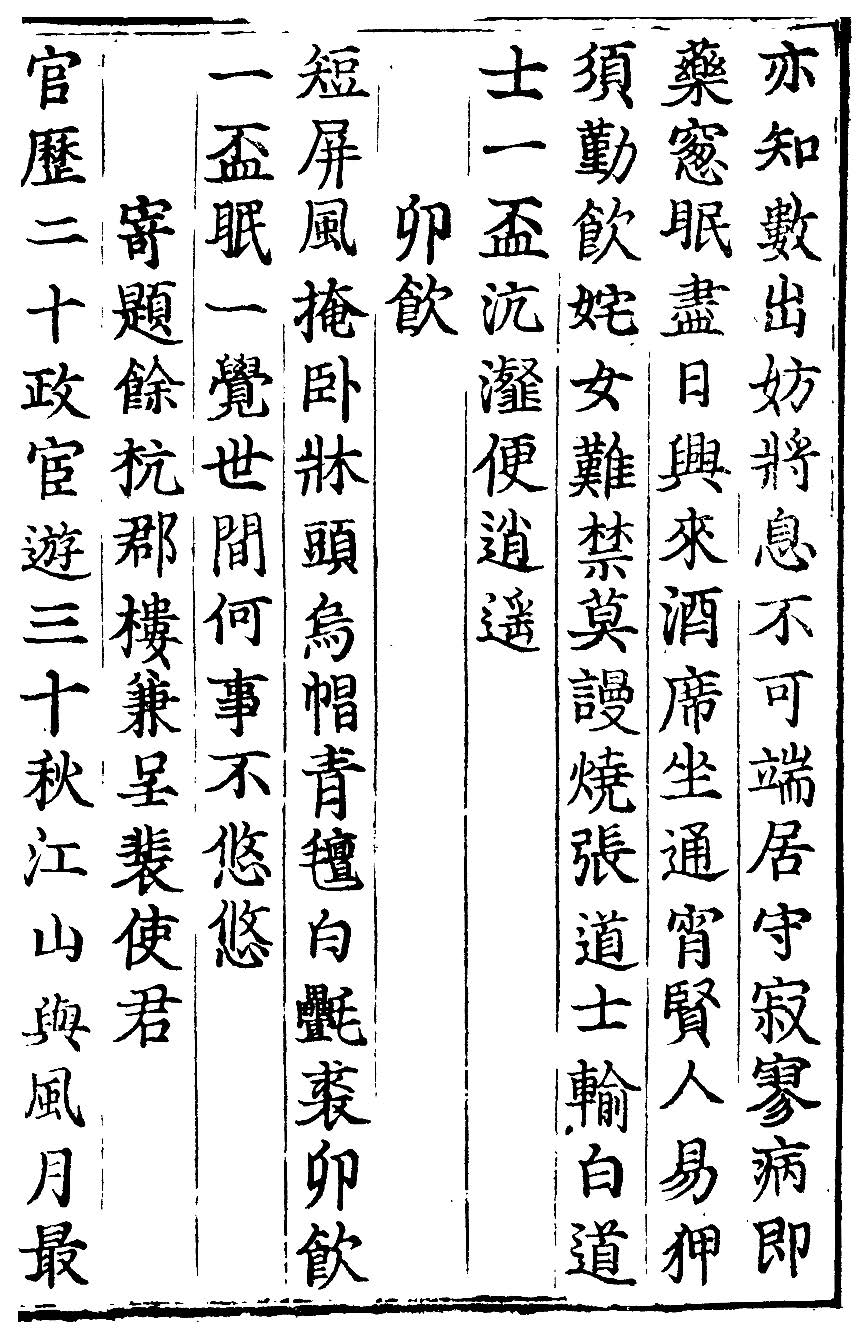 亦知數出妨將息不可端居守寂寥病即
藥窻眠盡日興來酒席坐通宵賢人易狎
須勤飲姹女難禁莫謾燒張道士輸白道
士一盃沆瀣便逍遥
卯飲
短屏風掩卧牀頭烏帽青氊白氎裘卯飲
一盃眠一覺世間何事不悠悠
寄題餘杭郡樓兼呈裴使君
官歷二十政宦遊三十秋江山與風月最